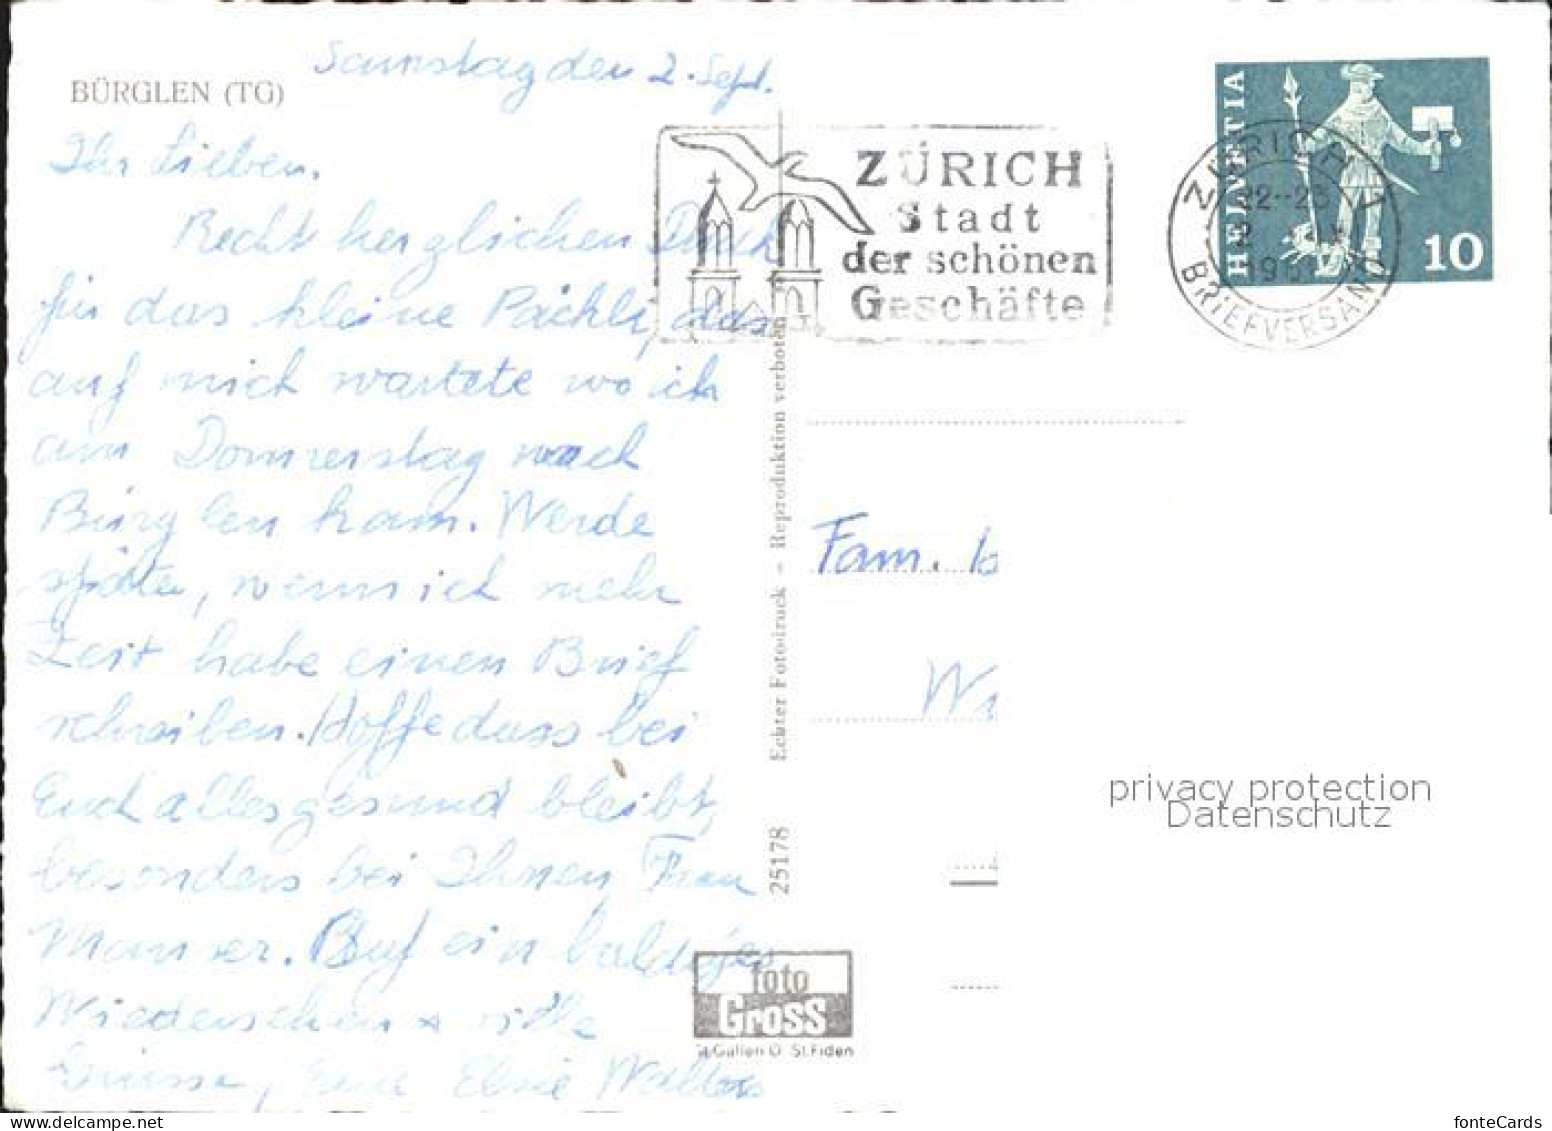 BÜRGLEN (TG)
Samstag den 2. Sept.
Ihr Lieben.
Recht herzlichen Dank
für das kleine Päckli, das
auf mich wartete wo ich
am Donnerstag nach
Bürglen kam. Werde
später, wenn ich mehr
Zeit habe einen Brief
schreiben. Hoffe dass bei
Euch alles gesund bleibt,
besonders bei Ihnen Frau
Auf ein baldiges
Wiedersehen + viele
Grüsse, Eure Elsie
ZÜRICH
Stadt
der schönen
Geschäfte
ZÜRICH 1
22--23
2
BRIEFVERSAND
HELVETIA
10
Fam.
25178 Echter Fotodruck – Reproduktion verboten
foto
Gross
St. Gallen O St.Fiden
privacy protection
Datenschutz
fonteCards